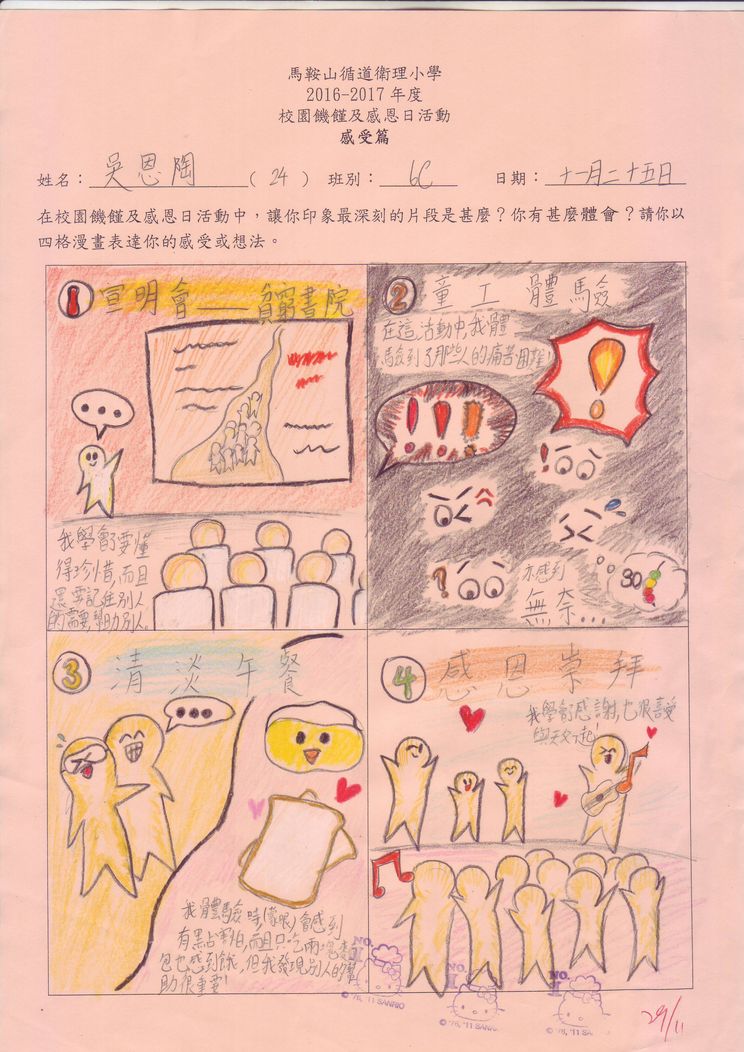 馬鞍山循道衛理小學
2016-2017 年度
校園饑饉及感恩日活動
感受篇
姓名：吳恩陶（24） 班別：6C 日期：十一月二十五日
在校園饑饉及感恩日活動中，讓你印象最深刻的片段是甚麼？你有甚麼體會？請你以
四格漫畫表達你的感受或想法。
1 宣明會——貧窮書院
我學會了要懂
得珍惜,而且
還要記住別人
的需要,幫助別人.
2 童工體驗
在這活動中,我體
驗到了那些人的痛苦困難!
30
亦感到
無奈...
3 清淡午餐
我體驗時(蒙眼)會感到
有點害怕,而且只吃兩塊麥
包也感到餓,但我發現別人的幫
助很重要!
4 感恩崇拜
我學會了感謝,也很喜愛
與天父一起!
NO.1
©'76,'11 SANRIO
NO.1
©'76,'11 SANRIO
NO.1
©'76,'11 SANRIO
29/11